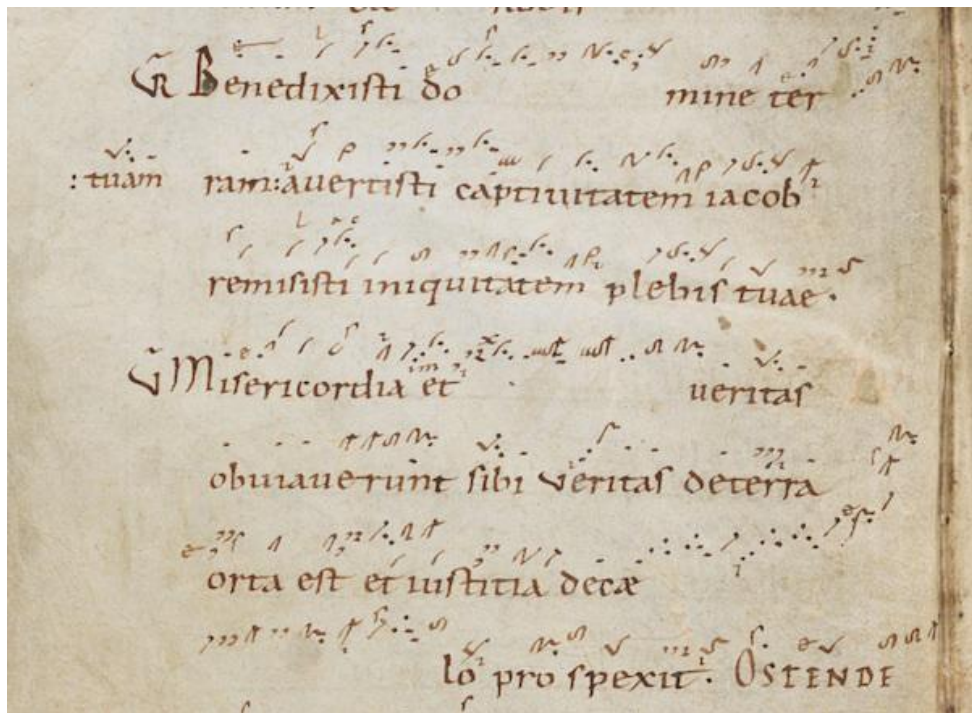 GR Benedixisti do mine ter
: tuam ram: avertisti captivitatem iacob
remisisti iniquitatem plebis tuae.
V Misericordia et veritas
obviaverunt sibi veritas deterra
orta est et iustitia decæ
lo pro spexit. OSTENDE